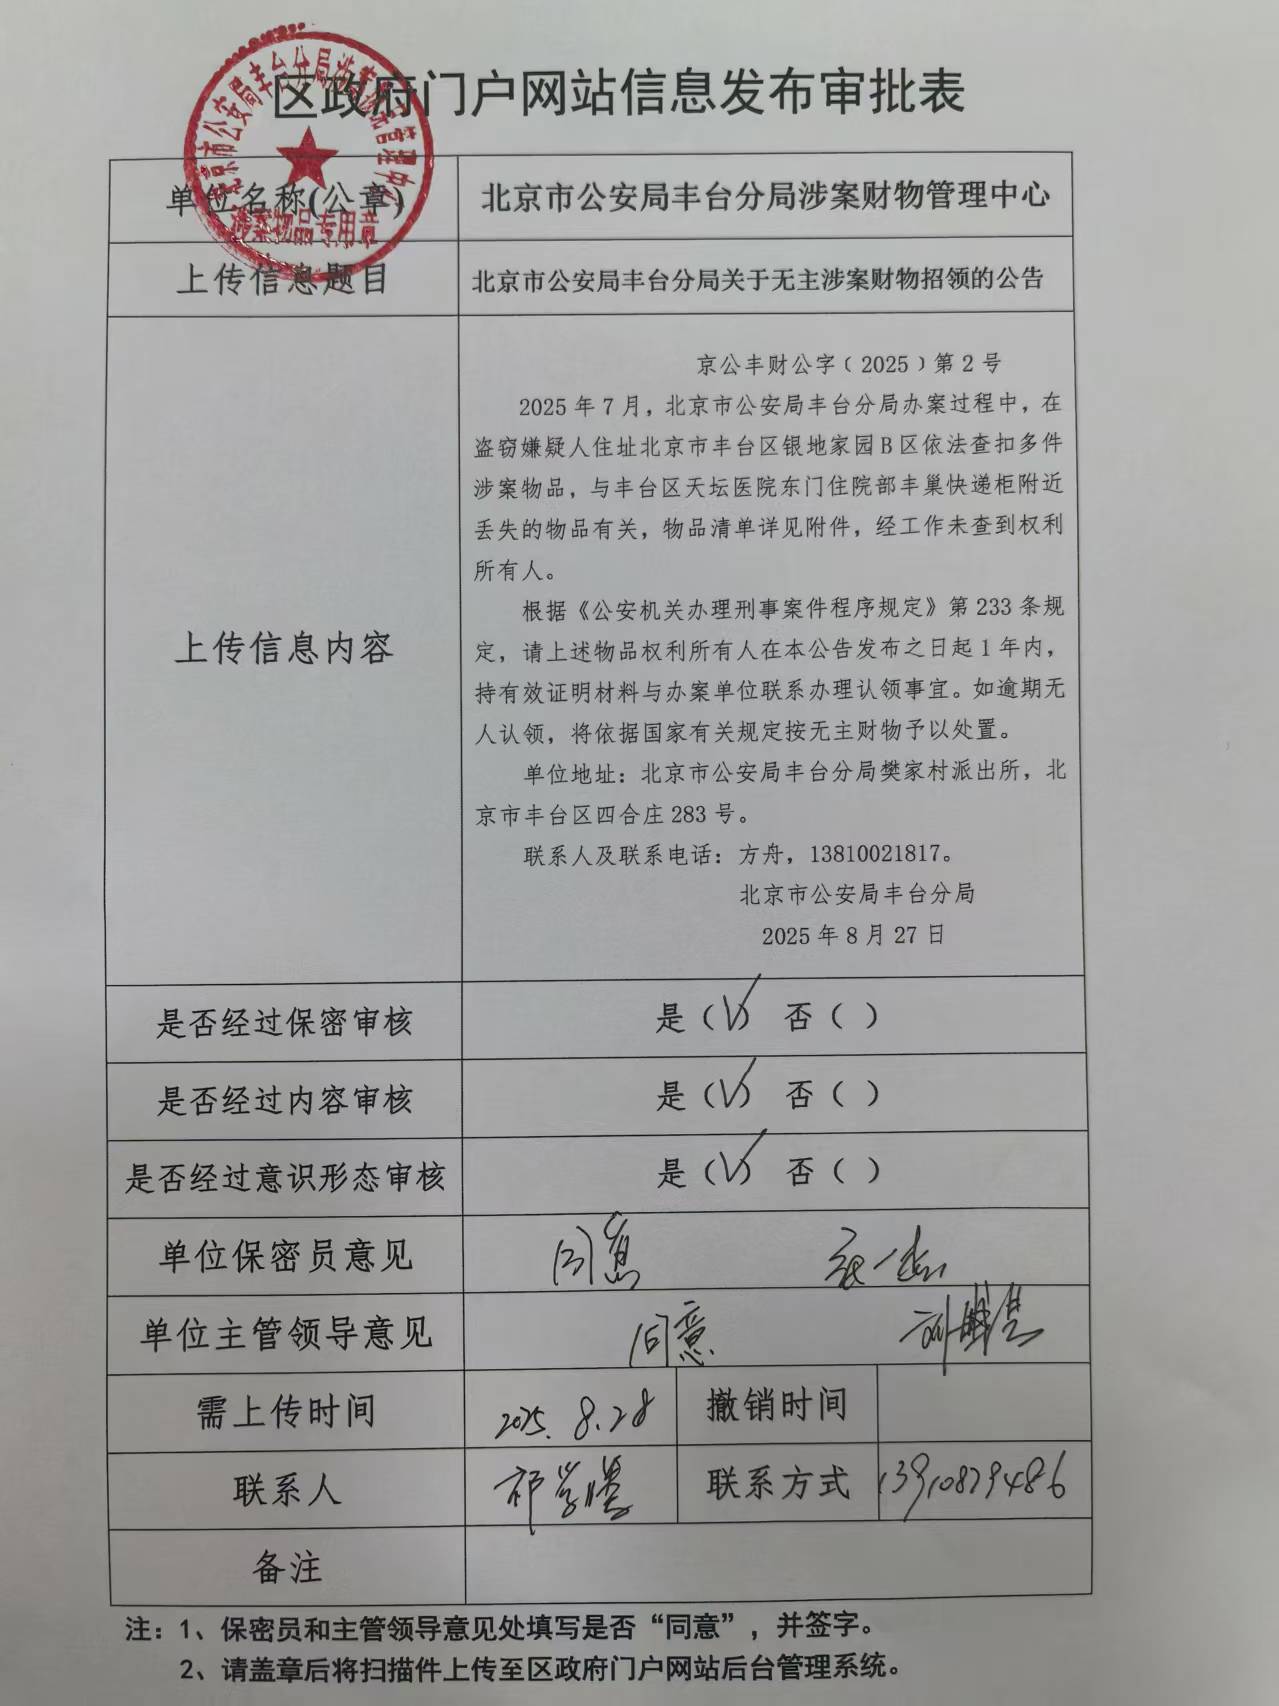 区政府门户网站信息发布审批表
北京市公安局丰台分局涉案财物管理中心
涉案物品专用章
单位名称(公章)
北京市公安局丰台分局涉案财物管理中心
上传信息题目
北京市公安局丰台分局关于无主涉案财物招领的公告
上传信息内容
京公丰财公字﹝2025﹞第2号
2025年7月，北京市公安局丰台分局办案过程中，在
盗窃嫌疑人住址北京市丰台区银地家园B区依法查扣多件
涉案物品，与丰台区天坛医院东门住院部丰巢快递柜附近
丢失的物品有关，物品清单详见附件，经工作未查到权利
所有人。
根据《公安机关办理刑事案件程序规定》第233条规
定，请上述物品权利所有人在本公告发布之日起1年内，
持有效证明材料与办案单位联系办理认领事宜。如逾期无
人认领，将依据国家有关规定按无主财物予以处置。
单位地址：北京市公安局丰台分局樊家村派出所，北
京市丰台区四合庄283号。
联系人及联系电话：方舟，13810021817。
北京市公安局丰台分局
2025年8月27日
是否经过保密审核
是（√） 否（ ）
是否经过内容审核
是（√） 否（ ）
是否经过意识形态审核
是（√） 否（ ）
单位保密员意见
同意
单位主管领导意见
同意
需上传时间
2025.8.28
撤销时间
联系人
联系方式
13910879486
备注
注：1、保密员和主管领导意见处填写是否“同意”，并签字。
2、请盖章后将扫描件上传至区政府门户网站后台管理系统。